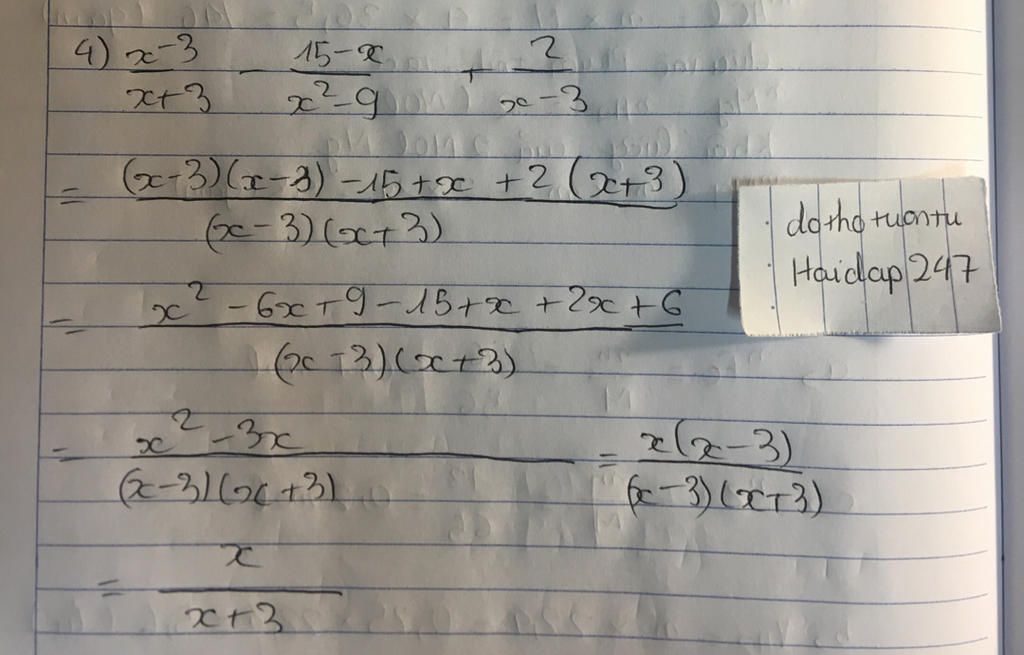 4) \frac{x-3}{x+3} - \frac{15-x}{x^2-9} + \frac{2}{x-3}
= \frac{(x-3)(x-3)-15+x+2(x+3)}{(x-3)(x+3)}
= \frac{x^2-6x+9-15+x+2x+6}{(x-3)(x+3)}
= \frac{x^2-3x}{(x-3)(x+3)} = \frac{x(x-3)}{(x-3)(x+3)}
= \frac{x}{x+3}
dothotuontu
Hoidap247